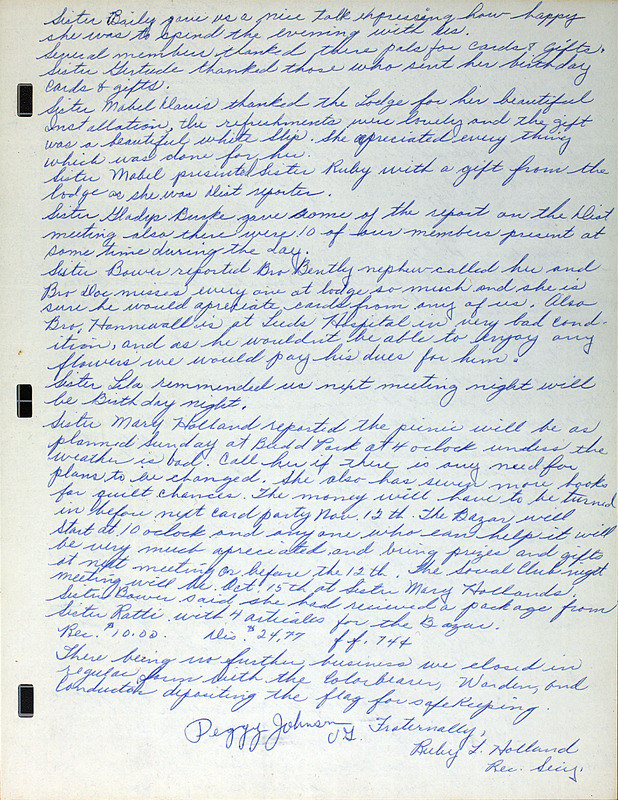 Sister Baily gave us a nice talk expressing how happy
she was to spend the evening with us.
Several members thanked there pals for cards & gifts.
Sister Gertrude thanked those who sent her birthday
cards & gifts.
Sister Mabel Davis thanked the Lodge for her beautiful
Installation, the refreshments were lovely and the gift
was a beautiful white slip. She apreciated every thing
which was done for her.
Sister Mabel presinted Sister Ruby with a gift from the
lodge as she was Dist reporter.
Sister Gladys Burke gave some of the report on the Dist
meeting also there were 10 of our members present at
some time during the day.
Sister Bower reported Bro Bently nephew called her and
Bro Doc misses every one at lodge so much and she is
sure he would apreciate cards from any of us. Also
Bro. Hannewall is at Leeds Hospital in very bad cond-
ition, and as he wouldnt be able to enjoy any
flowers we would pay his dues for him.
Sister Lela remmended us next meeting night will
be Birthday night.
Sister Mary Holland reported the picnic will be as
planned Sunday at Budd Park at 4 oclock unless the
weather is bad. Call her if there is any need for
plans to be changed. She also has seven more books
for quilt chances. The money will have to be turned
in before next card party Nov. 12th. The Bazar will
start at 10 oclock and any one who can help it will
be very much apreciated and bring prizes and gifts
at next meeting or before the 12th. The Social Club night
meeting will be Oct. 15th at Sister Mary Hollands.
Sister Bower said she had recieved a package from
Sister Ratti with 4 articales for the Bazar.
Rec. $10.00. Dis. $24.77 f.f. 74¢
There being no further business we closed in
regular form with the Colorbearer, Warden, and
Conductor depositing the flag for safe keeping.
Peggy Johnson Fraternally,
Ruby L. Holland
Rec. Secy.